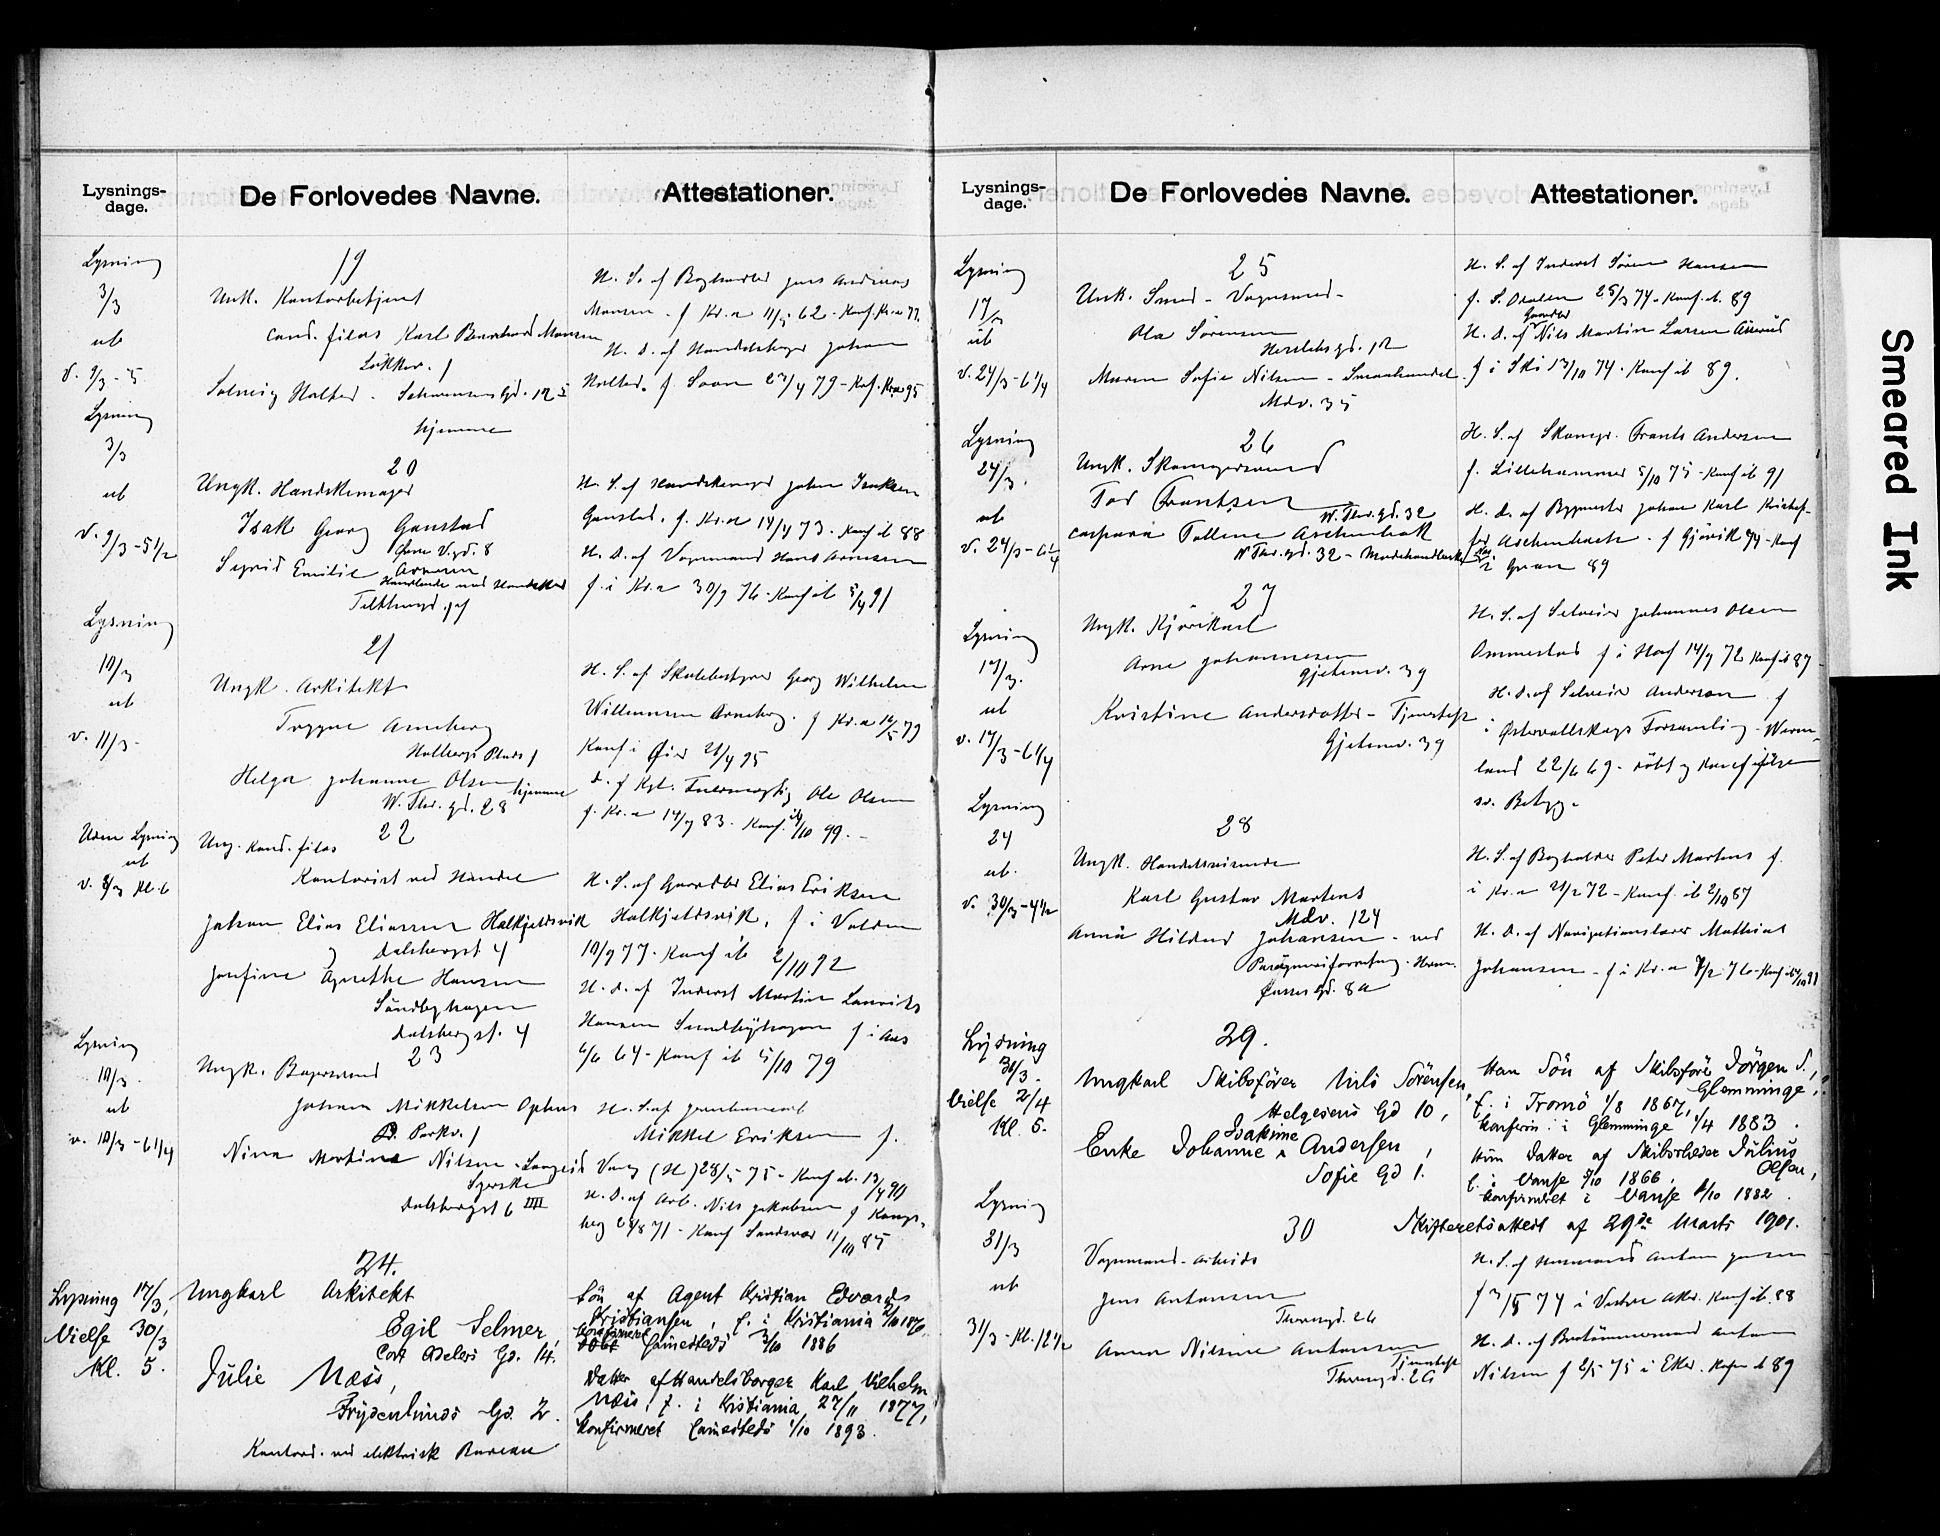 Lysnings-
dage.
De Forlovedes Navne.
Attestationer.
Lysning
3/3
ub
v. 9/3 - 5
19
Unk. Kontorbetjent
cand. filos Karl Bernhard Monsen
Løkkev. 1
Solveig Holted. Schwensensgd. 12
hjemme
H. S. af Boghandler Jens Andreas
Monsen - f. Kr.a 11/5 62 - Konf. Kr.a 77.
H. D. af Handelsborger Johan
Holted. f. Soon 23/4 79 - Kof. Kra 95
Lysning
3/3
ub
v. 9/3 - 5 1/2
20
Ungk. Handskemager
Isak Georg Ganstad
Øvre V.gd. 8
Sigrid Emilie Arnesen
Handlende med Handsker
Telthusgd.
H. S. af Handskemager Johan Isaksen
Ganstad. f. Kr.a 14/4 73. Konf ib 88
H. D. af Vognmand Hans Arnesen
f. i Kr.a 30/9 76 - Konf ib 5/4 91
Lysning
10/3
ub
v. 11/3 -
21
Ungk. Arkitekt
Trygve Arneberg
Holbergs Plads 1
Helga Johanne Olsen hjemme
W. Thr. gd. 28
H. S. af Skolebestyrer Georg Wilhelm
Willumsen Arneberg. f Kr.a 16/5 79
Konf i Øier 21/4 95
D. af Kgl. Fuldmægtig Ole Olsen
f. Kr.a 14/4 83. Konf. /10 99. -
Uden Lysning
ub
v. 8/3 Kl. 6
22
Ung. kand. filos
Kontorist ved Handel
Johan Elias Eliassen Halkjeldsvik
Dalsbergst 4
Josefine Agnethe Hansen
Sundbyhagen
Dalsbergst. 4
H. S. af Gaardbr Elias Eriksen
Halkjeldsvik, f i Volden
10/9 77. Konf ib 2/10 92
H. D. af Inderst Martin Laurits
Hansen Sundbyhagen f i Aas
6/6 64 - Konf ib 5/10 79
Lysning
10/3
ub
v. 10/3 - 6 1/4
23
Ungk. Bagersvend
Johan Mikkelsen Ophus
Parkv. 1
Nina Martine Nilsen -
Syerske
Dalsbergst 6 IIII
H. S. af
Mikkel Eriksen f.
Vang (H) 28/5 75 - Konf ib. 13/4 90
H. D. af Arb. Nils Jakobsen f Kongs-
berg 28/8 71 - Konf Sandsvær 11/10 85
24.
Lysning 17/3,
Vielse 30/3
Kl. 5.
Ungkarl Arkitekt
Egil Selmer,
Cort Adelers Gd. 14.
Julie Næss,
Frydenlunds Gd. 2.
Kontord. ved elektrisk Bureau
Søn af Agent Kristian Edvards
Kristiansen, f. i Kristiania 2/10 1870,
konfirmeret
døbt sammesteds 3/10 1886
Datter af Handelsborger Karl Vilhelm
Næss, f. i Kristiania 27/11 1877,
konfirmeret sammesteds 1/10 1893.
Lysnings-
dage.
De Forlovedes Navne.
Attestationer.
Lysning
17/3
ub
v. 24/3 - 6 1/4
25
Unk. Smed - Vognsmed -
Ola Sørensen
Herslebsgd. 12
Maren Sofie Nilsen - Smaahandel
Mdv. 35
H. S. af Inderst Søren Hansen
f. S. Odalen 25/3 74 - Konf. ib. 89
H. D. af Gaardbr Nils Martin Larsen Aanerud
f i Ski 13/10 74. Konf ib 89.
Lysning
24/3.
ub
v. 24/3 - 6 1/4
26
Ungk. Skomagersvend
Tor Frantzen
W. Thr. gd. 32
Caspara Talline Aschenbach
W Thr. gd. 32 - Modehandlerske
H. S. af Skomgr. Frants Andersen
f. Lillehammer 5/10 75 - Konf ib 91
H. D. af Bygmester Johan Karl Kristof-
fer Aschenbach - f Gjøvik 7/9 - Konf
i Gran 89
Lysning
17/3.
ub
v. 17/3 - 6 1/4
27
Ungk. Kjørekarl
Arne Johannesen
Gjetemv. 39
Kristine Andersdotter - Tjeneste
Gjetemv. 39
H. S. af Selveier Johannes Olsen
Ommestad f i Hof 14/9 72 Konf ib 87 -
H. D. af Selveier Anderson f
i Østervallskogs Forsamling - Werm-
land 22/6 69 - døbt og konf ifølge
sv. Betyg.
Lysning
24
ub.
v. 30/3 - 4 1/2
28
Ungk. Handelsreisende
Karl Gustav Martens
Mdv. 124
Anna Hildur Johansen - ved
Papirforretning. Herm.
Fosses Gd. 8a
H. S. af Bogholder Peter Martens f.
i Kr.a 21/2 72 - Konf. ib 2/10 87
H. D. af Navigationslærer Mathias
Johansen - f i Kr.a 7/2 76 - Konf ib /10 91
Lysning
31/3.
Vielse 2/4
Kl. 5.
29.
Ungkarl Skibsfører Nils Sørensen,
Helgesens Gd 10,
Enke Johanne Joakime Andersen,
Sofie Gd 1.
Han Søn af Skibsfører Jørgen S.,
Glemminge,
f. i Tromö 1/8 1867,
konferm. i Glemminge 1/4 1883.
Hun Datter af Skibsreder Julius
Olsen,
f. i Vanse 5/10 1866,
konfirmeret i Vanse 1/10 1882.
Skifteretsattest af 29de Marts 1901.
Lysning
31/3
ub
31/3 - Kl. 12 1/2
30
Vognmand - Arbeids
Jens Antonsen
Thorvgd. 26
Anna Nilsine Antonsen
Tjeneste
Thorvgd. 26
H. S. af Husmand Anton Jensen
f 3/5 74 i Vestre Aker. Konf ib. 88
H. D. af Baattømmermand Anton
Nilsen f 2/5 75 i Eker. Kofm ib 89
Smeared Ink